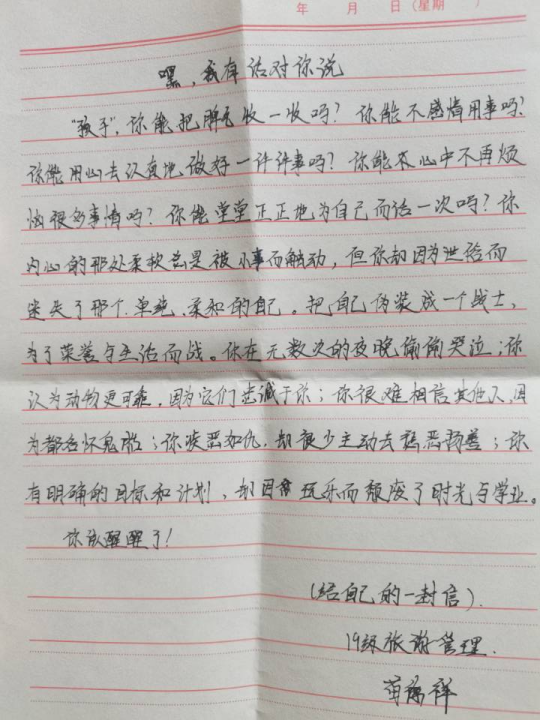 年 月 日(星期 )
嘿,我有话对你说
“孩子”,你能把脾气收一收吗?你能不感情用事吗?
你能用心去认真地做好一件件事吗?你能不心中不再烦
恼很多事情吗?你能堂堂正正地为自己而活一次吗?你
内心的那处柔软总是被小事而触动,但你却因为世俗而
迷失了那个单纯、柔和的自己。把自己伪装成一个战士,
为了荣誉与生活而战。你在无数次的夜晚偷偷哭泣;你
认为动物更可靠,因为它们忠诚于你;你很难相信其他人,因
为都各怀鬼胎;你疾恶如仇,却很少主动去惩恶扬善;你
有明确的目标和计划,却因 玩乐而颓废了时光与学业。
你该醒醒了!
(给自己的一封信).
19级 管理.
祥